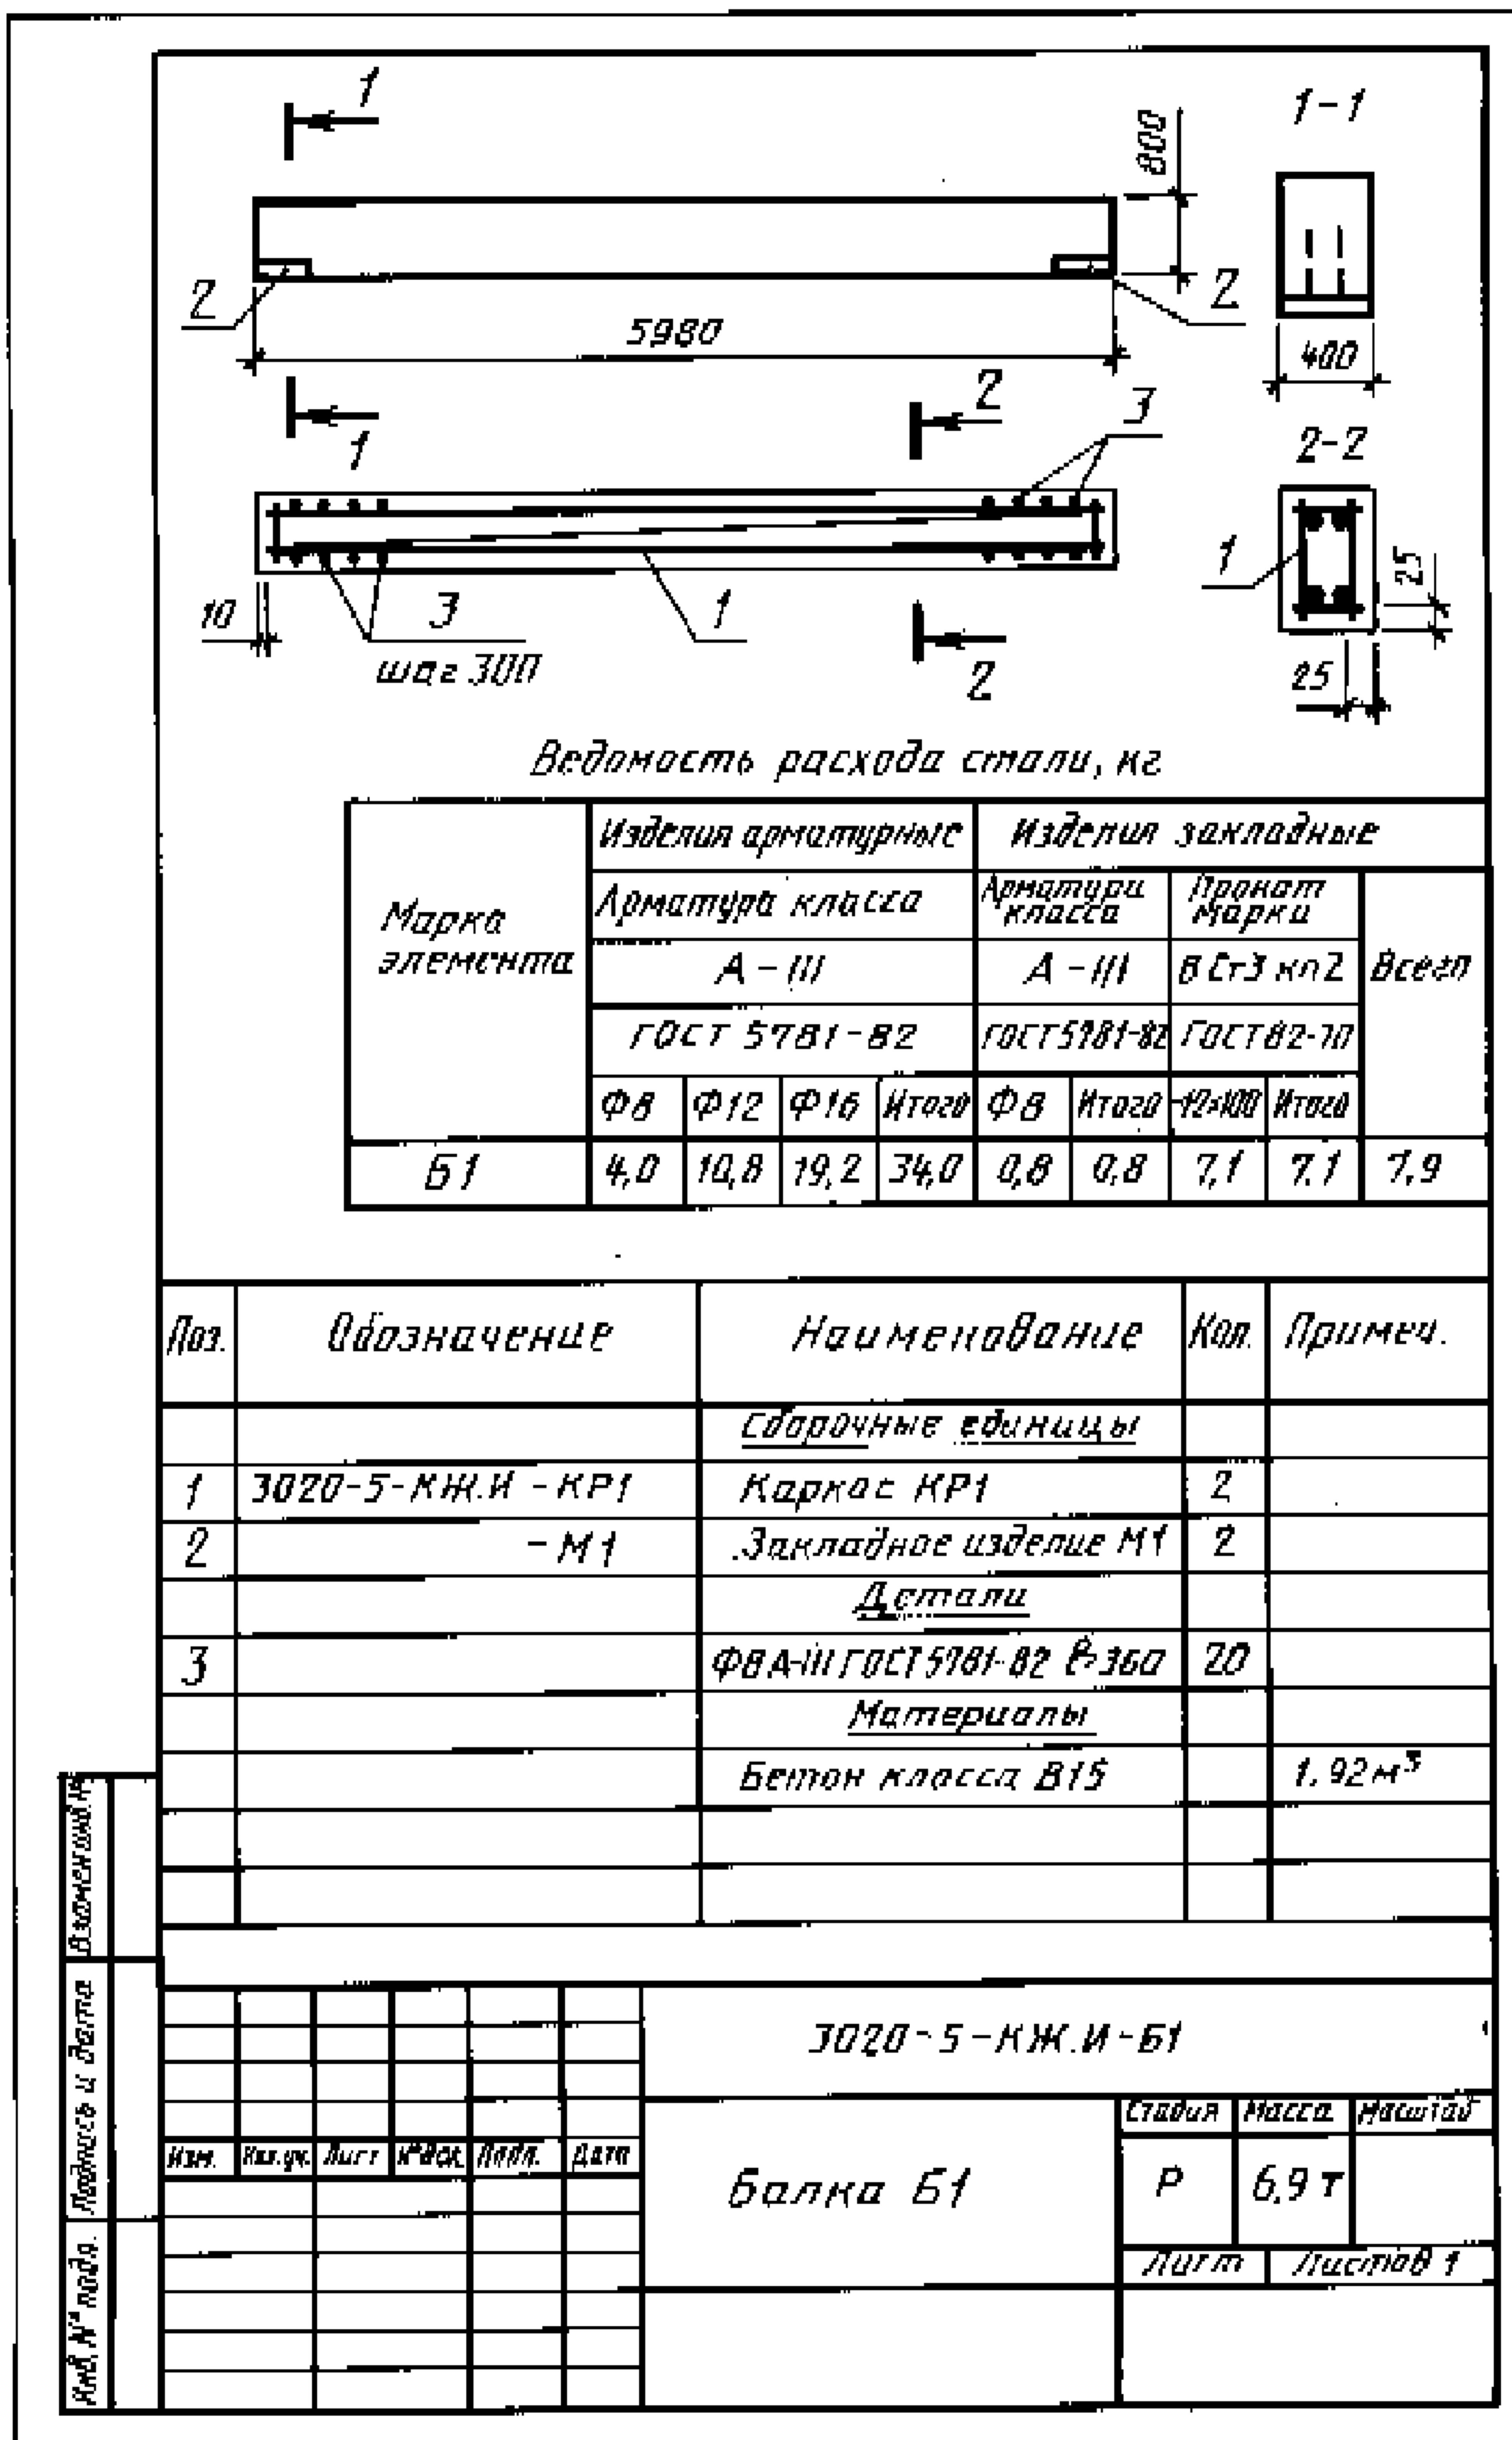 1
1-1
800
2
2
5980
400
1
2
3
2-2
1
25
10
3
1
шаг 300
2
25
Ведомость расхода стали, кг
Марка элемента
Изделия арматурные
Изделия закладные
Арматура класса
Арматура класса
Прокат марки
Всего
А-III
А-III
ВСт3кп2
ГОСТ 5781-82
ГОСТ 5781-82
ГОСТ 82-70
Ф8 Ф12 Ф16 Итого Ф8 Итого -12×100 Итого
Б1 4,0 10,8 19,2 34,0 0,8 0,8 7,1 7,1 7,9
Поз. Обозначение Наименование Кол. Примеч.
Сборочные единицы
1 3020-5-КЖ.И-КР1 Каркас КР1 2
2 -М1 Закладное изделие М1 2
Детали
3 Ф8 А-III ГОСТ 5781-82 ℓ=360 20
Материалы
Бетон класса В15 1,92 м³
Взамен инв. №
Подпись и дата
Инв. № подл.
3020-5-КЖ.И-Б1
Изм. Кол.уч. Лист № док. Подп. Дата
Балка Б1
Стадия Масса Масштаб
Р 6,9 т
Лист Листов 1